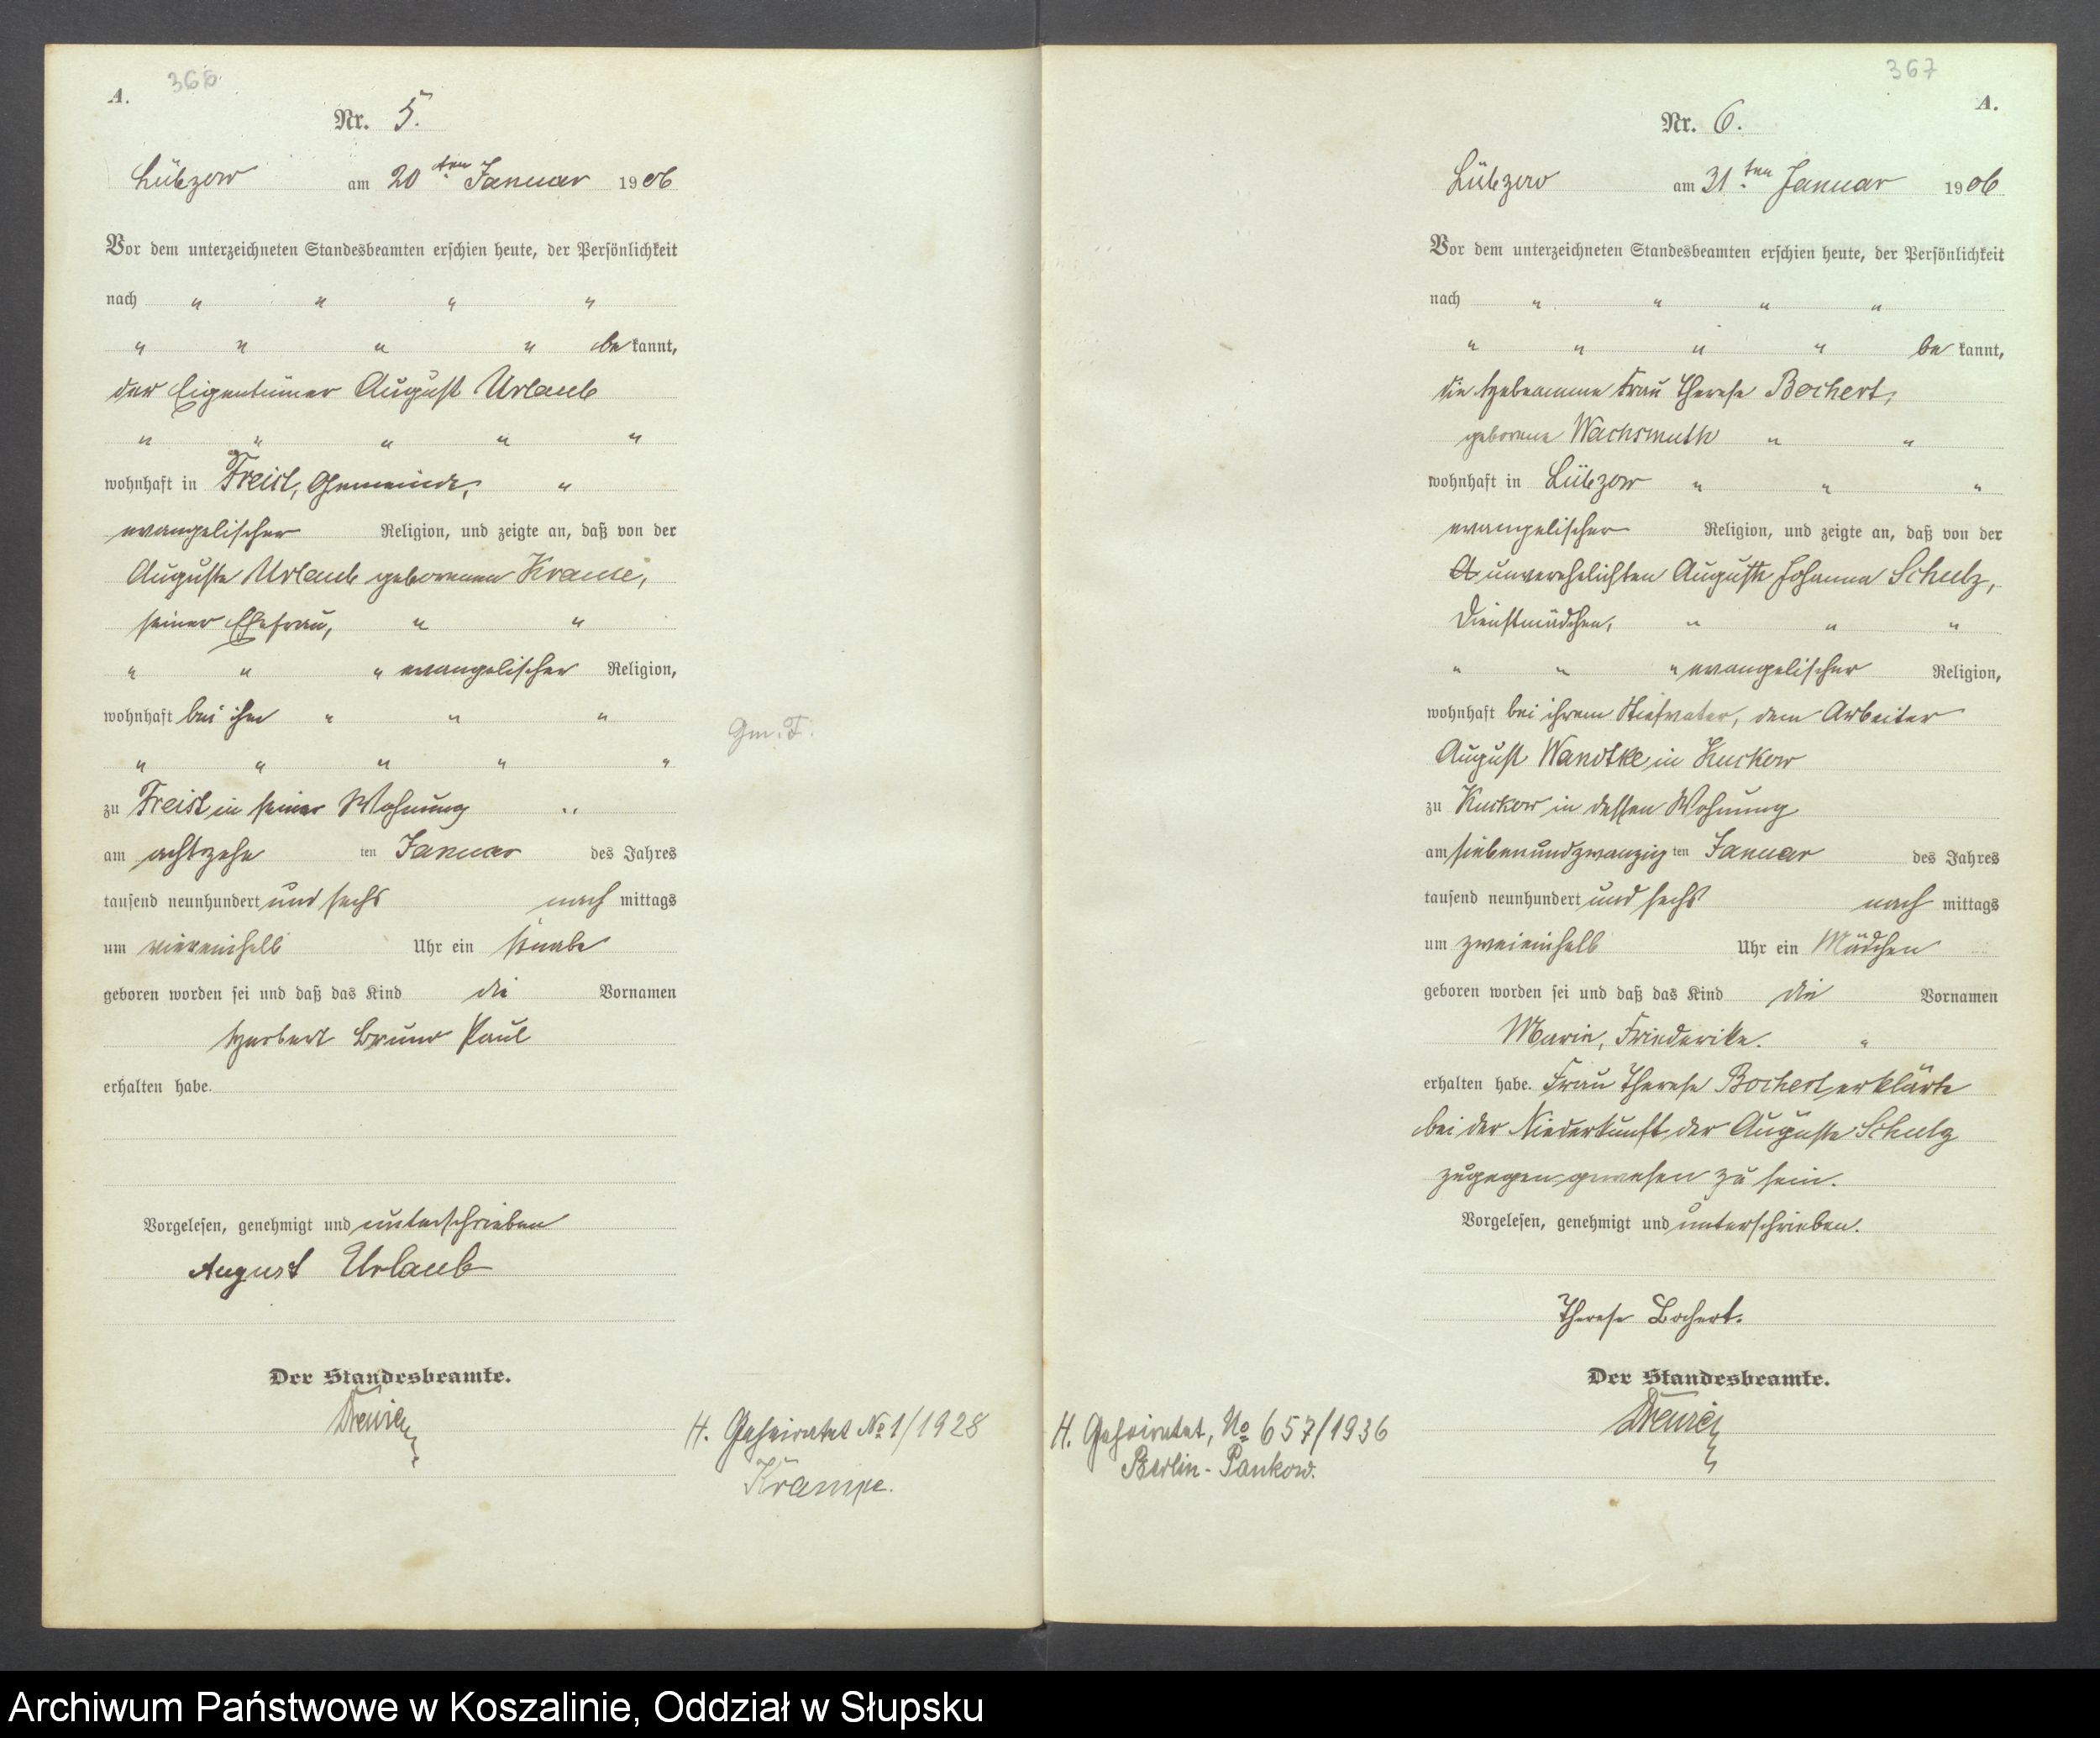 366
A.
Nr. 5.
Lübzow am 20ten Januar 1906
Vor dem unterzeichneten Standesbeamten erschien heute, der Persönlichkeit
nach " " " "
" " " " bekannt,
der Eigentümer August Urlaub
" " " " "
wohnhaft in Freist, Gemeinde, "
evangelischer Religion, und zeigte an, daß von der
Auguste Urlaub geborenen Krause,
seiner Ehefrau, " "
" " " evangelischer Religion,
wohnhaft bei ihm " " "
" " " " "
zu Freist in seiner Wohnung "
am achtzehn ten Januar des Jahres
tausend neunhundert und sechs nach mittags
um viereinhalb Uhr ein Knabe
geboren worden sei und daß das Kind die Vornamen
Herbert Bruno Paul
erhalten habe.
Vorgelesen, genehmigt und unterschrieben
August Urlaub
Der Standesbeamte.
Gm. F.
H. Geheiratet No 1/1928
Krampe.
367
A.
Nr. 6.
Lübzow am 31ten Januar 1906
Vor dem unterzeichneten Standesbeamten erschien heute, der Persönlichkeit
nach " " " "
" " " " bekannt,
die Hebeamme Frau Therese Bochert,
geborene Wachsmuth " "
wohnhaft in Lübzow " " "
evangelischer Religion, und zeigte an, daß von der
A unverehelichten Auguste Johanna Schulz,
Dienstmädchen, " " "
" " " evangelischer Religion,
wohnhaft bei ihrem Stiefvater, dem Arbeiter
August Wandtke in Kuckow
zu Kuckow in dessen Wohnung
am siebenundzwanzig ten Januar des Jahres
tausend neunhundert und sechs nach mittags
um zweieinhalb Uhr ein Mädchen
geboren worden sei und daß das Kind die Vornamen
Marie, Friederike. "
erhalten habe. Frau Therese Bochert erklärte
bei der Niederkunft der Auguste Schulz
zugegen gewesen zu sein.
Vorgelesen, genehmigt und unterschrieben.
Therese Bochert.
Der Standesbeamte.
H. Geheiratet, No 657/1936
Berlin-Pankow.
Archiwum Państwowe w Koszalinie, Oddział w Słupsku